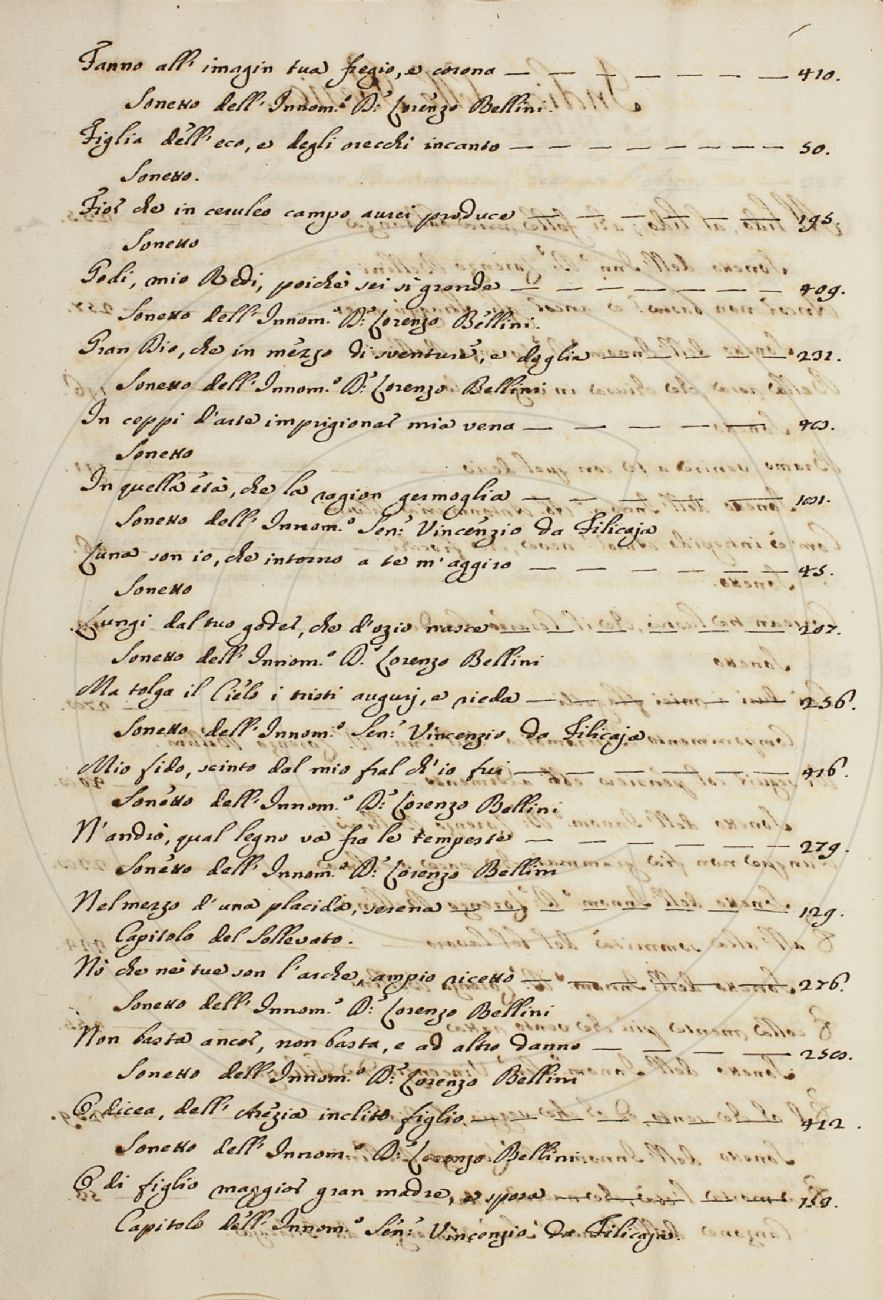 Fanno all' imagin tua fregio, e corona — — — — — — — — 410.
Sonetto dell' Innom.º D.r Lorenzo Bellini.
Figlia dell' eco, e degli orecchi incanto — — — — — — — — 50.
Sonetto.
Fior che in ceruleo campo aurei produce — — — — — — — 195.
Sonetto
Godi, mio Redi, poichè sei sì grande — — — — — — — — 409.
Sonetto dell' Innom.º D.r Lorenzo Bellini.
Gran Dio, che in mezzo di sventure, e doglia — — — — — 231.
Sonetto dell' Innom.º D.r Lorenzo Bellini
In ceppi d'arte imprigionar mia vena — — — — — — 403.
Sonetto
In quella età, che la ragion germoglia — — — — — — 101.
Sonetto dell' Innom.º Sen.r Vincenzio da Filicaja
Luna son io, che intorno a te m'aggiro — — — — — — — 45.
Sonetto
Lungi dal tuo goder, che d'ozio nasce — — — — — — — 207.
Sonetto dell' Innom.º D.r Lorenzo Bellini
Ma tolga il Cielo i tristi augurj, e rieda — — — — — — 256.
Sonetto dell' Innom.º Sen.r Vincenzio da Filicaja
Mio fido, scinto dal mio fral ch'io fui — — — — — — — 416.
Sonetto dell' Innom.º D.r Lorenzo Bellini
N'andrò, qual legno va fra le tempeste — — — — — — — 279.
Sonetto dell' Innom.º D.r Lorenzo Bellini
Nel mezzo d'una placida, serena — — — — — — — — 129.
Capitolo del Sollevato.
Nò che nè tue son l'arche, ampio ricetto — — — — — — 276.
Sonetto dell' Innom.º D.r Lorenzo Bellini
Non basta ancor, non basta, e ad altro danno — — — — 250.
Sonetto dell' Innom.º D.r Lorenzo Bellini
O dicea, dell' Arezia inclito figlio — — — — — — — — 412.
Sonetto dell' Innom.º D.r Lorenzo Bellini
O di figlio maggior gran madre, e sposa — — — — — —
Capitolo dell' Innom.º Sen.r Vincenzio da Filicaja.